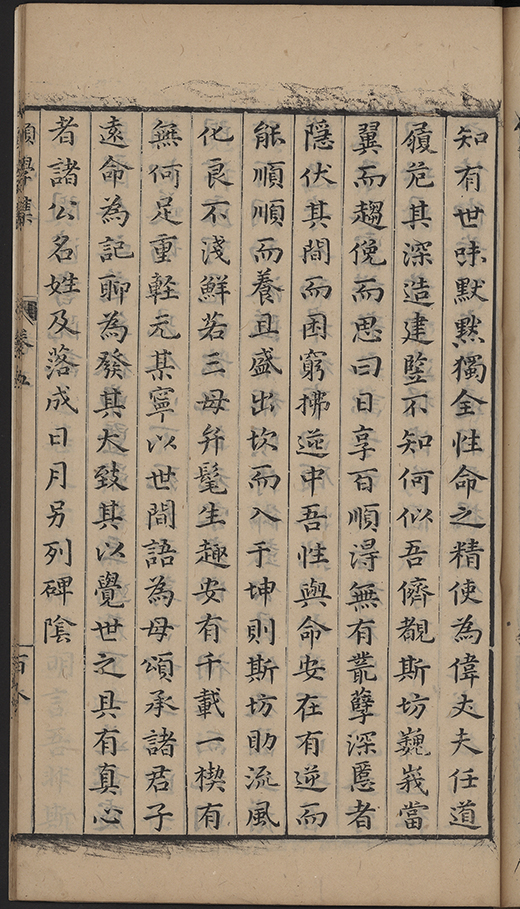 知有世味默默獨全性命之精使為偉丈夫任道
履危其深造建豎不知何似吾儕覩斯坊巍峩當
翼而趨俛而思曰日享百順得無有叢孽深慝者
隱伏其間而困窮拂逆中吾性與命安在有逆而
能順順而養且盛出坎而入于坤則斯坊助流風
化良不淺鮮若三母弁髦生趣安有千載一楔有
無何足重輕元某寧以世間語為母頌承諸君子
遠命為記聊為發其大致其以覺世之具有真心
者諸公名姓及落成日月另列碑陰
願學集
卷五
百八